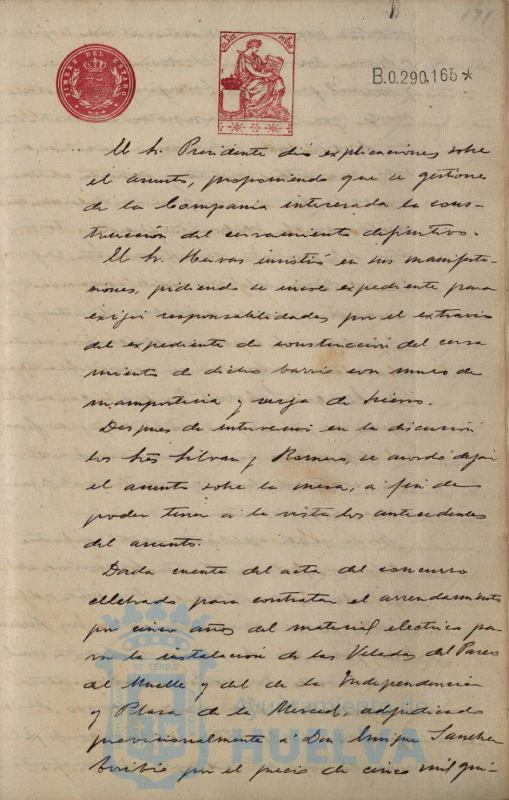 171
TIMBRE DEL ESTADO
B.0.290.165*
El Sr. Presidente dió explicaciones sobre
el asunto, proponiendo que se gestione
de la Compania interesada la cons-
trucción del cerramiento definitivo.
El Sr. Hervas insistió en sus manifesta-
ciones, pidiendo se incoe expediente para
exijir responsabilidades por el extravio
del expediente de construcción del cerra
miento de dicho barrio con muro de
mamposteria y verja de hierro.
Despues de intervenir en la discusión
los Sres Silvan y Romero, se acordó dejar
el asunto sobre la mesa, a fin de
poder tener a la vista los antecedentes
del asunto.
Dada cuenta del acta del concurso
celebrado para contratar el arrendamiento
por cinco años del material electrico pa-
ra la instalación de las Veladas del Paseo
del Muelle y del de la Independencia
y Plaza de la Merced, adjudicado
provisionalmente a Don Enrique Sanchez
por el precio de cinco mil qui-
Ayuntamiento de
HUELVA